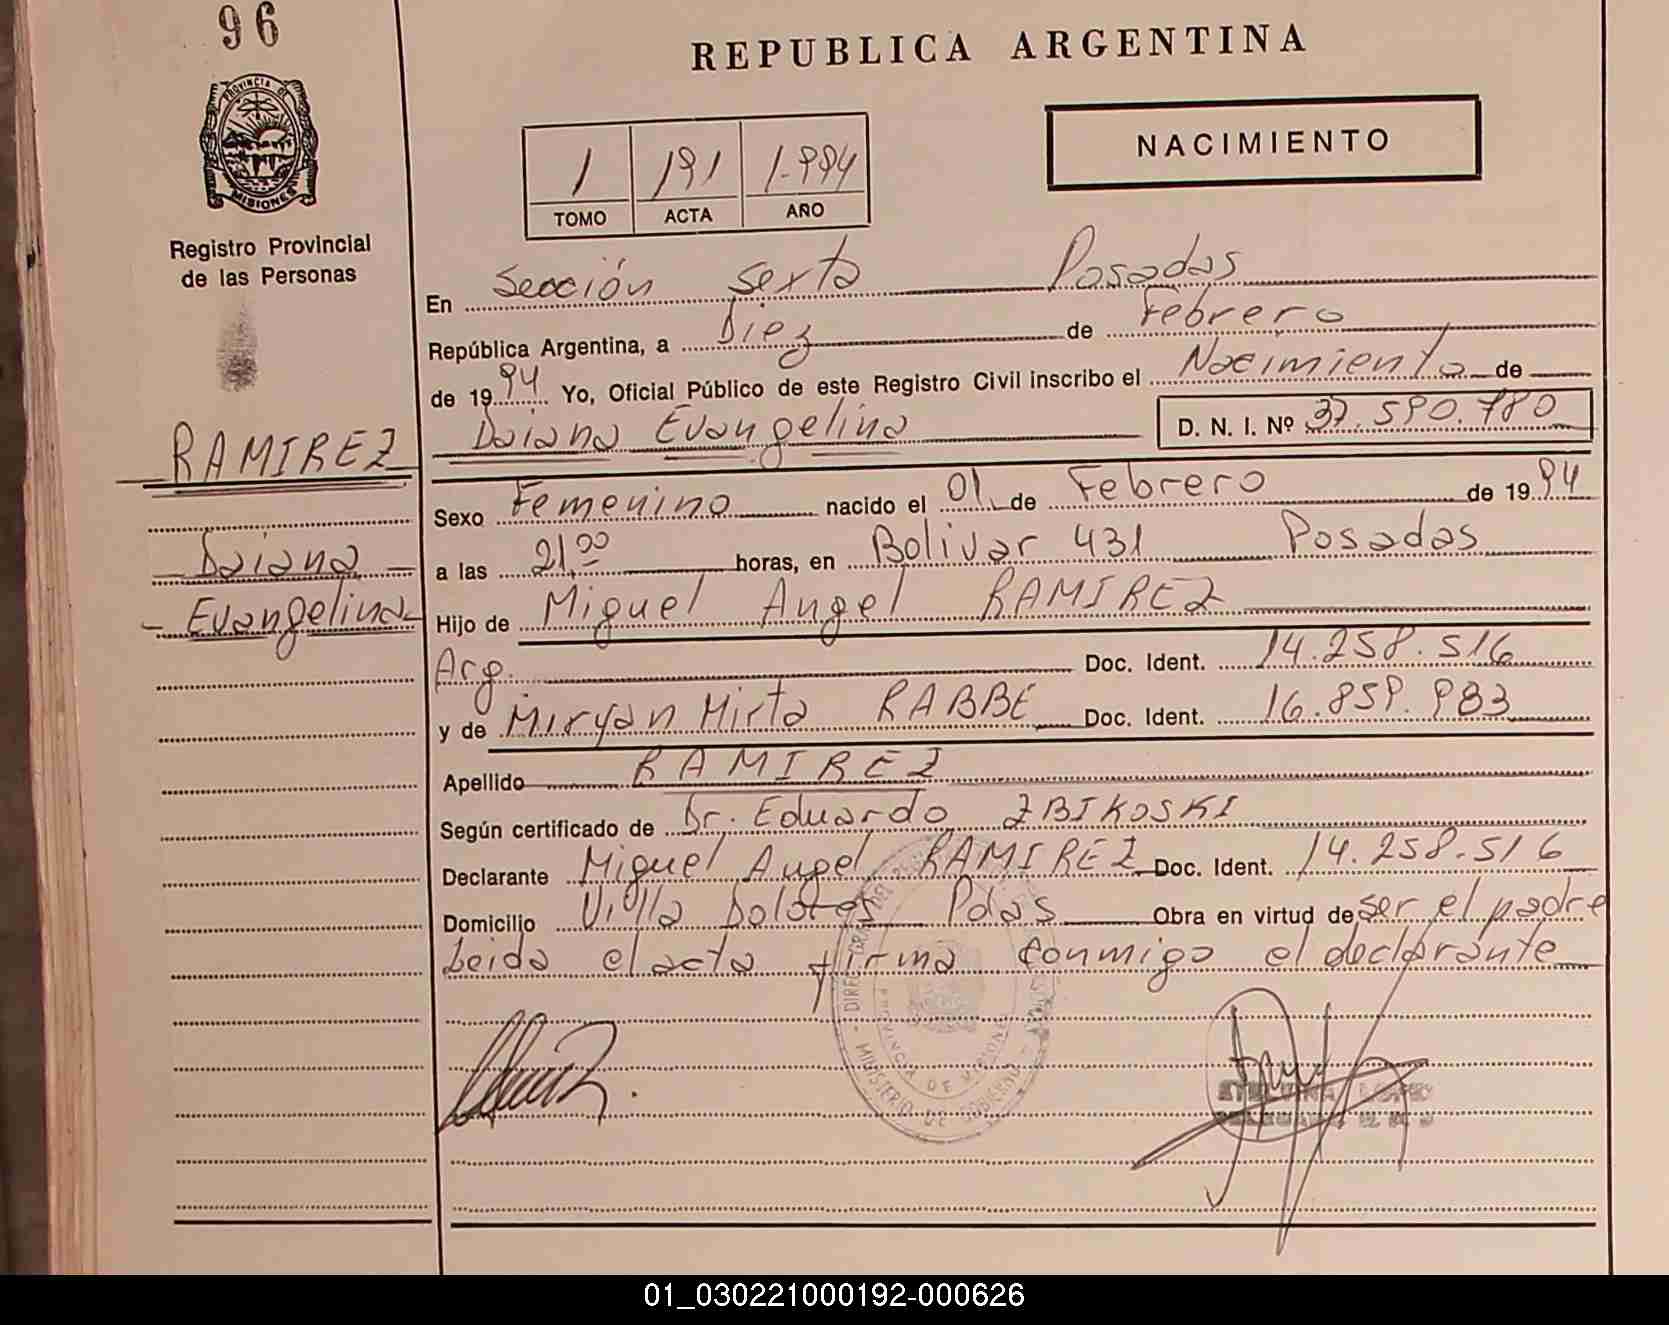 96
REPUBLICA ARGENTINA
PROVINCIA DE
MISIONES
Registro Provincial
de las Personas
1 191 1.994
TOMO ACTA AÑO
NACIMIENTO
En Sección Sexta Posadas
República Argentina, a Diez de Febrero
de 1994 Yo, Oficial Público de este Registro Civil inscribo el Nacimiento de
RAMIREZ
Daiana Evangelina D. N. I. Nº 37.590.780
Sexo Femenino nacido el 01 de Febrero de 1994
Daiana
a las 21,00 horas, en Bolivar 431 Posadas
Evangelina
Hijo de Miguel Angel RAMIREZ
Arg. Doc. Ident. 14.258.516
y de Miryan Mirta RABBE Doc. Ident. 16.859.983
Apellido RAMIREZ
Según certificado de Dr. Eduardo ZBIKOSKI
Declarante Miguel Angel RAMIREZ Doc. Ident. 14.258.516
Domicilio Villa Dolores Pdas Obra en virtud de ser el padre
Leida el acta firma conmigo el declarante
PROVINCIA DE MISIONES
MINISTERIO DE GOBIERNO
01_030221000192-000626